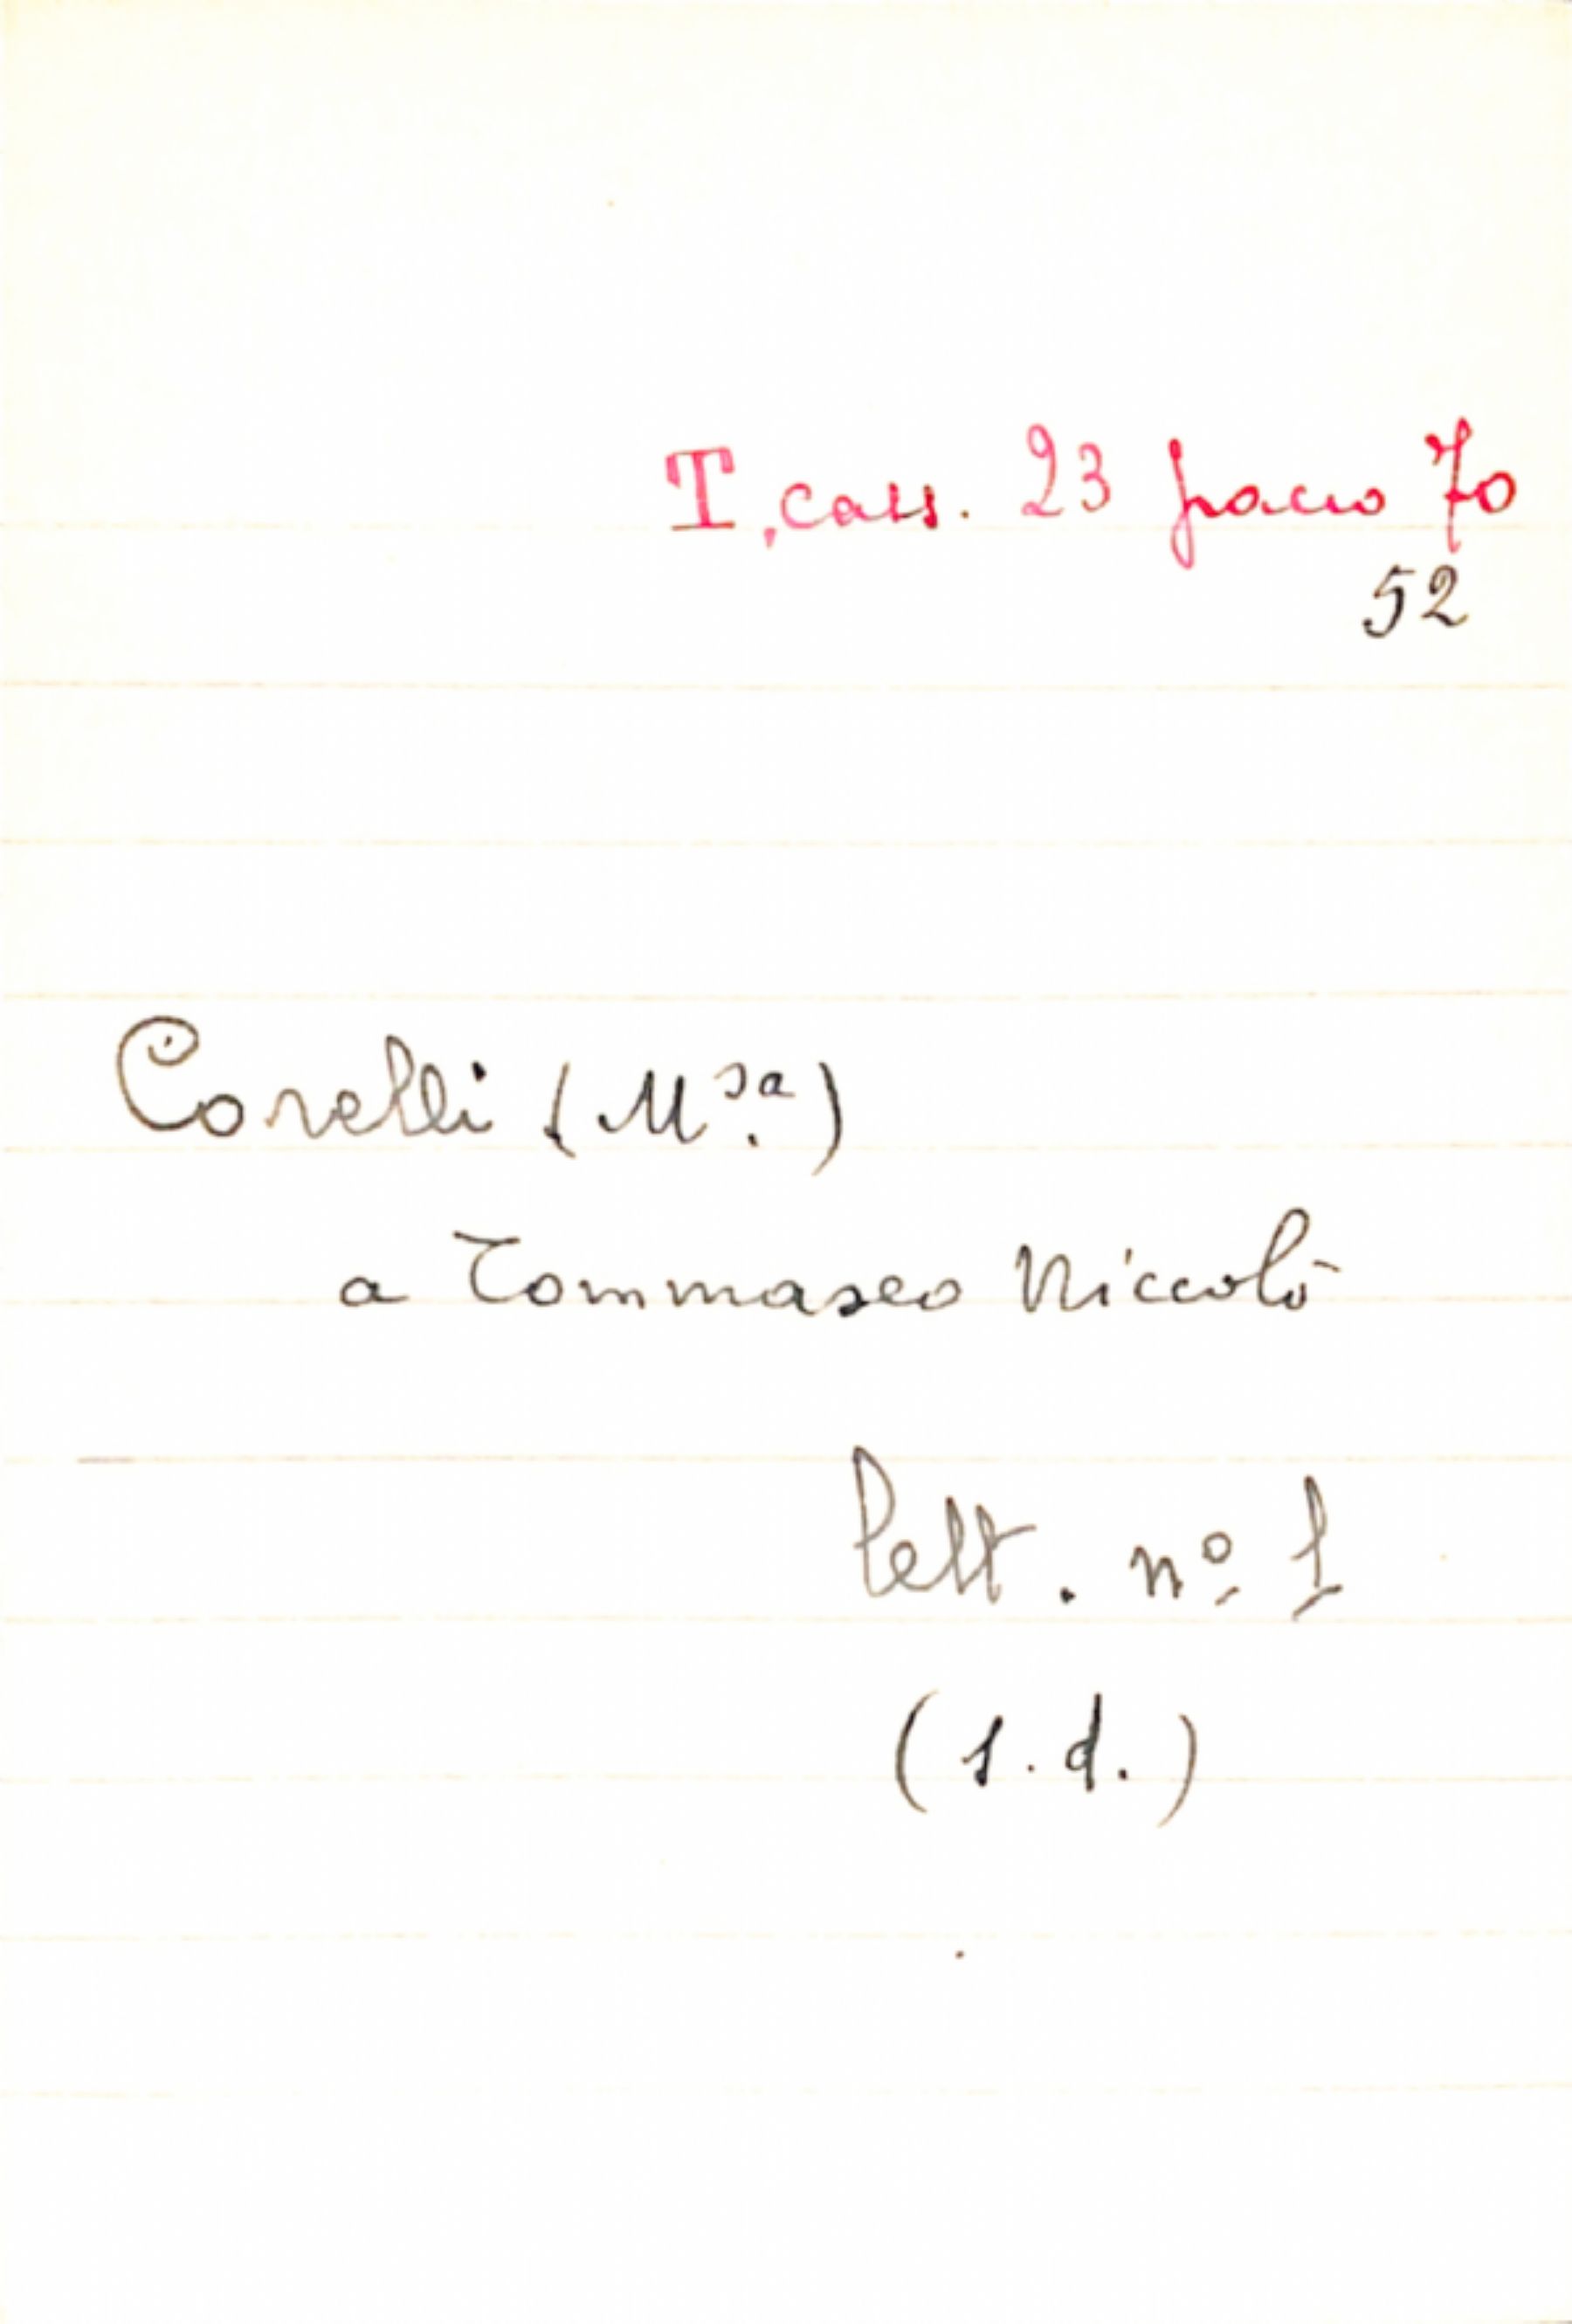 T. cass. 23 pacco 70
52
Corelli (M.sa)
a Tommaseo Niccolò
lett. nº 1
(s.d.)